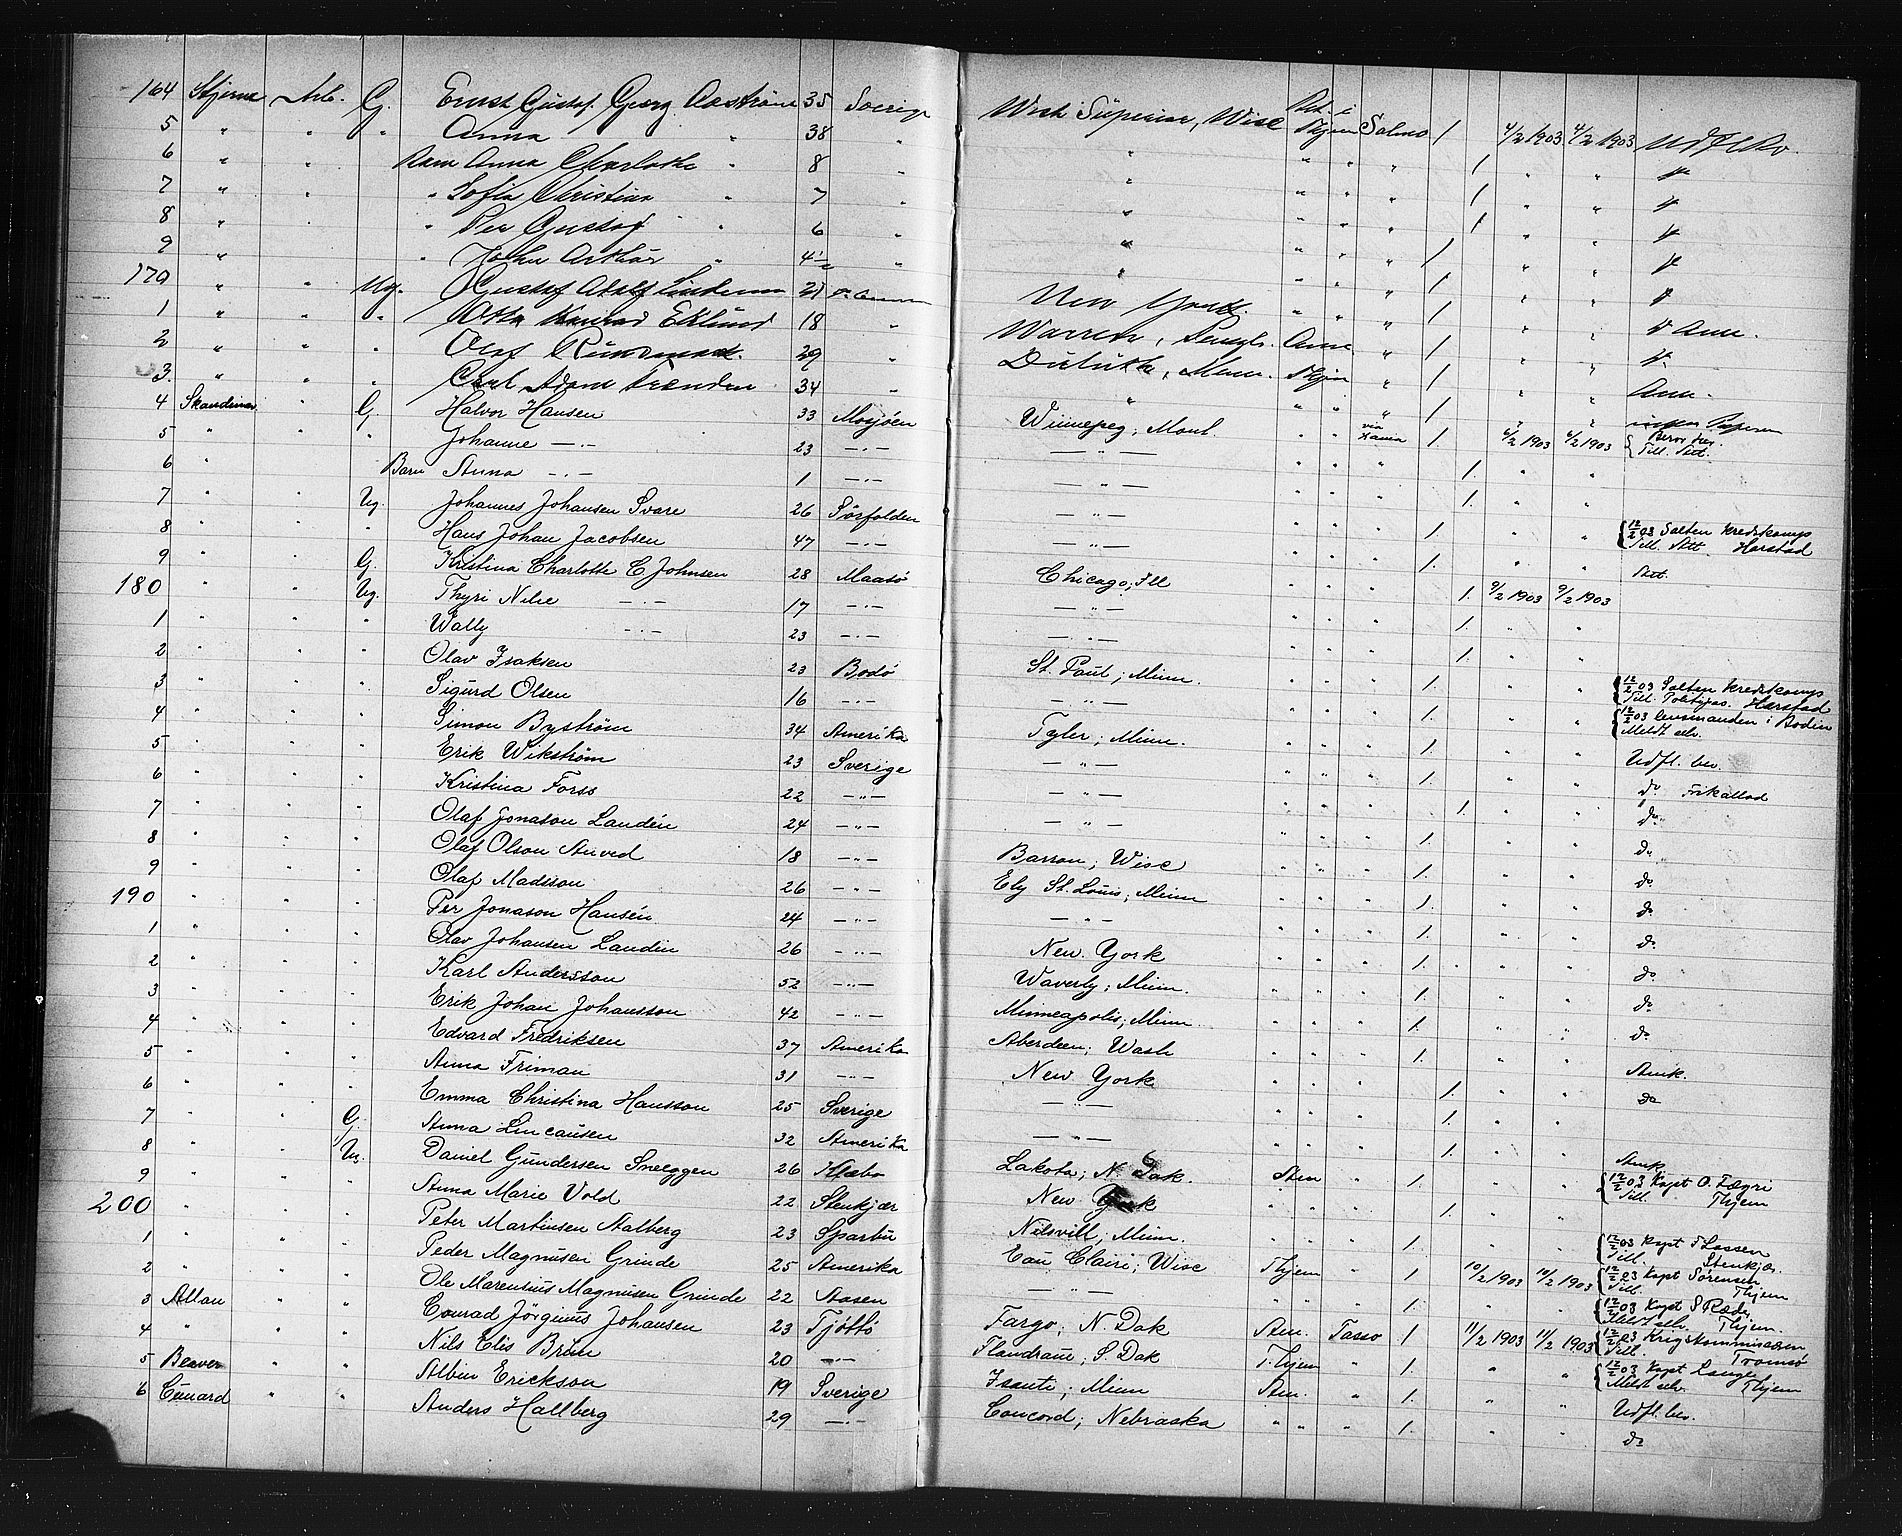 164 Stjerne Arb. G. Ernst Gustaf Georg Aaström 35 Sverige West Superior, Wisc Bet. i Thjem Salmo 1 4/2 1903 4/2 1903 Udfl bev.
5 " " " Anna " 38 " " " " " 1 " " do
6 " " Barn Anna Charlotte " 8 " " " " " 1 " " do
7 " " " Sofia Christina " 7 " " " " " 1 " " do
8 " " " Per Gustaf " 6 " " " " " 1 " " do
9 " " " John Arthur " 4 1/2 " " " " " 1 " " do
170 " " Ug. Gustaf Adolf 21 New York " " " 1 " " do Am.
1 " " " Otto Konrad Eklund 18 " Warren, Am. " 1 " " do
2 " " " Olaf 29 " Duluth, Minn. Thjem " 1 " " Am.
3. " " " Carl Adam 34 " " " " " 1 " "
4 Skandinav. " G. Halvor Hansen 33 Mosjöen Winnepeg; Mont. " " via Xania 1. 6/2 1903 6/2 1903 Till. Att.
5 " " " Johanne —"— 23 —"— — " — " " " 1. " "
6 " Barn Anna —"— 1 —"— — " — " " " 1. " "
7 " " Ug. Johannes Johansen Svare 26 Sörfolden — " — " " " 1. " " 12/2 03 Salten kredskomp Till. Att. Harstad
8 " " " Hans Johan Jacobsen 47 —"— — " — " " " 1. " " Att.
9 " " G. Kristina Charlotte C Johnsen 28 Maasö Chicago; Ill " " " 1. 9/2 1903 9/2 1903
180 " " Ug. Thyri Nilie —"— 17 —"— — " — " " " 1. " "
1 " " " Wally —"— 23 —"— — " — " " " 1. " "
2 " " " Olav Isaksen 23 Bodö St. Paul; Minn. " " " 1. " " 12/2 03 Salten kredskomp Till. Harstad
3 " " " Sigurd Olsen 16 —"— — " — " " " 1. " " 12/2 03 Lensmanden i Bodin Meldt selv.
4 " " " Simon Byström 34 Amerika Tyler; Minn. " " " 1. " " Udfl. bev.
5 " " " Erik Wikström 23 Sverige — " — " " " 1. " " do Frikallad
6 " " " Kristina Forss 22 —"— — " — " " " 1. " " do
7 " " " Olaf Jonason Landén 24 —"— — " — " " " 1. " " do
8 " " " Olaf Olson Anved 18 —"— Barron; Wisc " " " 1. " " do
9 " " " Olaf Madsson 26 —"— Ely St. Louis; Minn " " " 1. " " do
190 " " " Per Jonason Hansén 24 —"— — " — " " " 1. " " do
1 " " " Olav Johansen Landin 26 —"— New York " " " 1. " " do
2 " " " Karl Andersson 52 —"— Waverly; Minn. " " " 1. " " do
3 " " " Erik Johan Johansson 42 —"— Minneapolis; Minn " " " 1. " " do
4 " " " Edvard Fredriksen 37 Amerika Aberdeen; Wash " " " 1. " " Amk.
5 " " " Anna Friman 31 —"— New York " " " 1. " " do
6 " " " Emma Christina Hansson 25 Sverige — " — " " " 1. " "
7 " " G. Anna Lincausen 32 Amerika — " — " " " 1. " " Amk
8 " " Ug. Daniel Gundersen Sneeggen 26 Klæbo Lakota; N. Dak. Sten " " 1. " " 12/2 03 Kapt O. Lægri Till. Thjem
9 " " " Anna Marie Vold 22 Stenkjær New York " " " 1. " "
200 " " " Peter Martinsen Aalberg 23 Sparbu Nilsvill; Minn. " " " 1. " " 12/2 03 Kapt Till. Stenkjær.
1 " " " Peder Magnusen Grinde 25 Amerika Eau Clairi; Wisc Thjem " 1 10/2 1903 10/2 1903 12/2 03 Kapt Sörensen Till. Thjem
2 " " " Ole Marentius Magnusen Grinde 22 Aasen — " — " " " 1. " " 12/2 03 Kapt S Ræder Meldt selv. Thjem.
3 Allan " " Conrad Jörginus Johansen 23 Tjöttö Fargo; N. Dak Sten. Tasso 1 11/2 1903 11/2 1903 12/2 03 Krigskommissæren Till. Tromsö
4 " " " Nils Elis Bruun 20 —"— Flandrau; S. Dak Thjem " 1. " " 12/2 03 Kapt Lange Meldt selv. Thjem
5 Beaver " " Albin Erickson 19 Sverige Isanti; Minn Sten. " 1. " " Udfl. bev.
6 Cunard " " Anders Hallberg 29 —"— Concord; Nebraska " " " 1. " " do